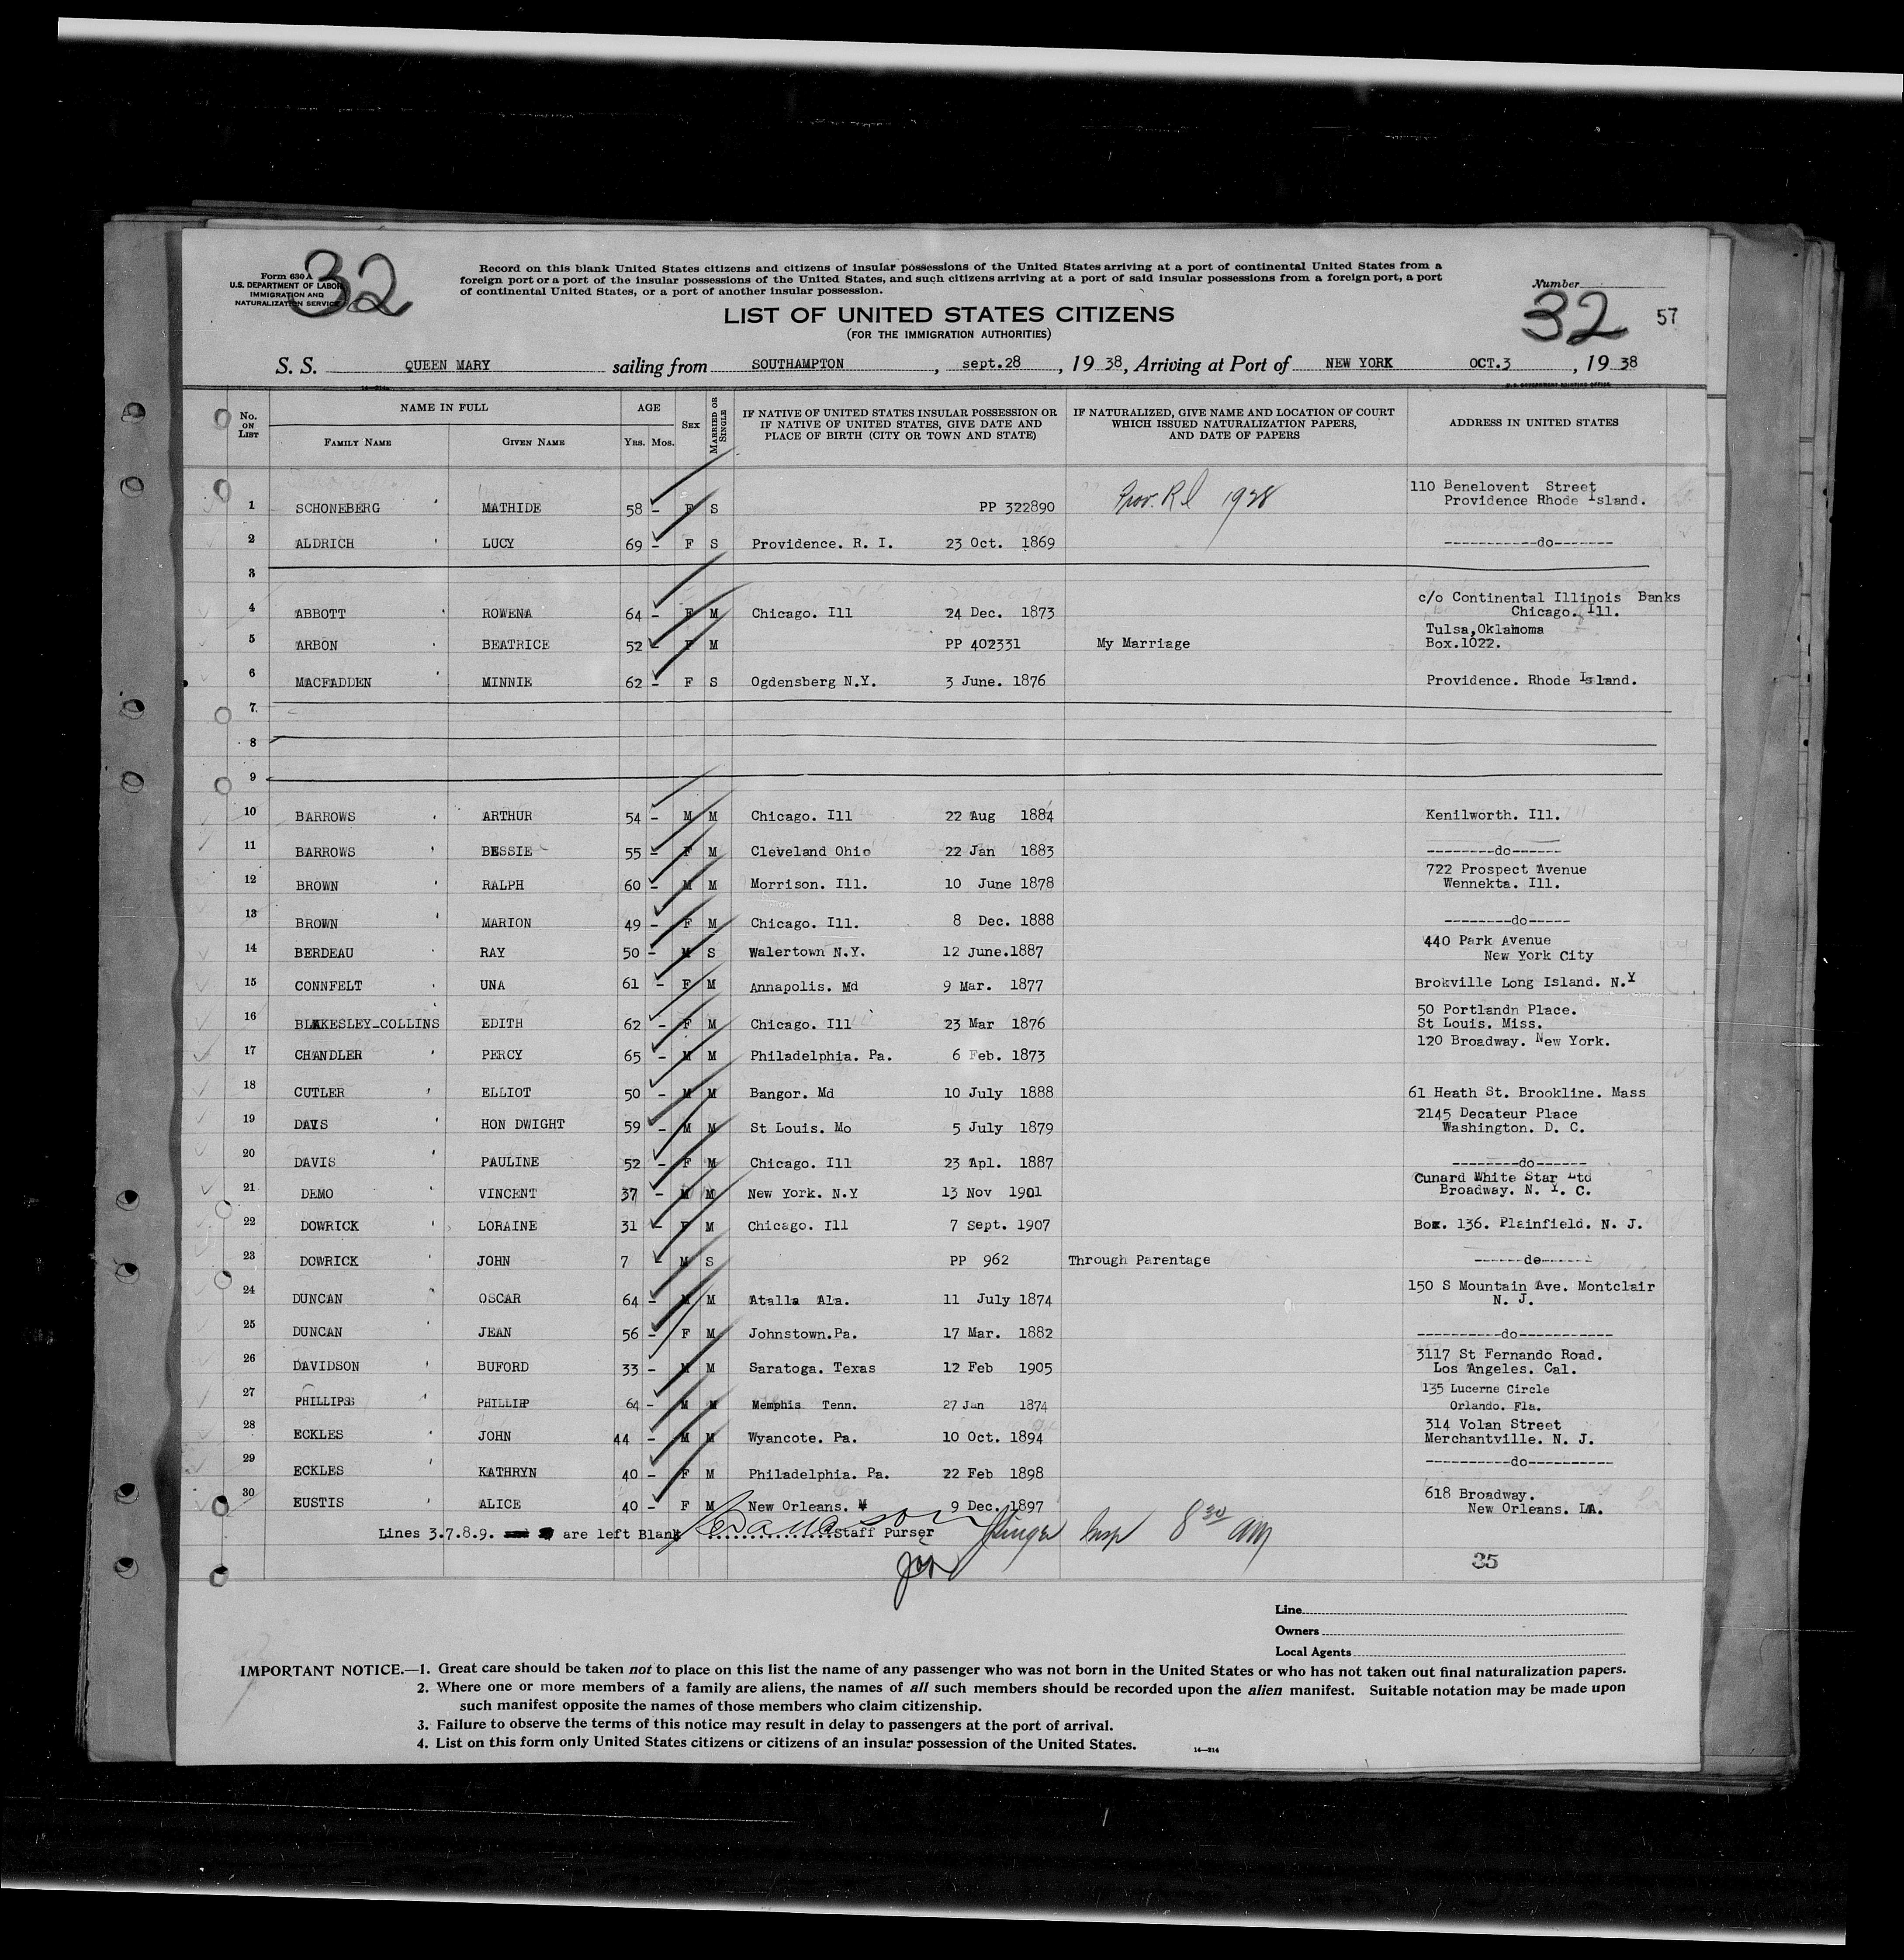 32
Form 630 A
U.S. DEPARTMENT OF LABOR
IMMIGRATION AND
NATURALIZATION SERVICE
Record on this blank United States citizens and citizens of insular possessions of the United States arriving at a port of continental United States from a
foreign port or a port of the insular possessions of the United States, and such citizens arriving at a port of said insular possessions from a foreign port, a port
of continental United States, or a port of another insular possession.
Number
32 57
LIST OF UNITED STATES CITIZENS
(FOR THE IMMIGRATION AUTHORITIES)
S. S. QUEEN MARY sailing from SOUTHAMPTON, sept.28, 1938, Arriving at Port of NEW YORK OCT.3, 1938
No. ON LIST NAME IN FULL FAMILY NAME GIVEN NAME AGE YRS. MOS. SEX MARRIED OR SINGLE IF NATIVE OF UNITED STATES INSULAR POSSESSION OR IF NATIVE OF UNITED STATES, GIVE DATE AND PLACE OF BIRTH (CITY OR TOWN AND STATE) IF NATURALIZED, GIVE NAME AND LOCATION OF COURT WHICH ISSUED NATURALIZATION PAPERS, AND DATE OF PAPERS ADDRESS IN UNITED STATES
1 SCHONEBERG MATHIDE 58 - F S PP 322890 Prov. R I 1928 110 Benelovent Street Providence Rhode Island.
2 ALDRICH LUCY 69 - F S Providence. R. I. 23 Oct. 1869 -----------do-------
3
4 ABBOTT ROWENA 64 - F M Chicago. Ill 24 Dec. 1873 c/o Continental Illinois Banks Chicago. Ill.
5 ARBON BEATRICE 52 - F M PP 402331 My Marriage Tulsa,Oklahoma Box.1022.
6 MACFADDEN MINNIE 62 - F S Ogdensberg N.Y. 3 June. 1876 Providence. Rhode Island.
7
8
9
10 BARROWS ARTHUR 54 - M M Chicago. Ill 22 Aug 1884 Kenilworth. Ill.
11 BARROWS BESSIE 55 - F M Cleveland Ohio 22 Jan 1883 --------do------
12 BROWN RALPH 60 - M M Morrison. Ill. 10 June 1878 722 Prospect Avenue Wennekta. Ill.
13 BROWN MARION 49 - F M Chicago. Ill. 8 Dec. 1888 --------do-----
14 BERDEAU RAY 50 - M S Walertown N.Y. 12 June.1887 440 Park Avenue New York City
15 CONNFELT UNA 61 - F M Annapolis. Md 9 Mar. 1877 Brokville Long Island. N.Y
16 BLAKESLEY-COLLINS EDITH 62 - F M Chicago. Ill 23 Mar 1876 50 Portlandn Place. St Louis. Miss.
17 CHANDLER PERCY 65 - M M Philadelphia. Pa. 6 Feb. 1873 120 Broadway. New York.
18 CUTLER ELLIOT 50 - M M Bangor. Md 10 July 1888 61 Heath St. Brookline. Mass
19 DAVIS HON DWIGHT 59 - M M St Louis. Mo 5 July 1879 2145 Decateur Place Washington. D. C.
20 DAVIS PAULINE 52 - F M Chicago. Ill 23 Apl. 1887 --------do------
21 DEMO VINCENT 37 - M M New York. N.Y 13 Nov 1901 Cunard White Star Ltd Broadway. N. Y. C.
22 DOWRICK LORAINE 31 - F M Chicago. Ill 7 Sept. 1907 Box. 136. Plainfield. N. J.
23 DOWRICK JOHN 7 - M S PP 962 Through Parentage ------de------
24 DUNCAN OSCAR 64 - M M Atalla Ala. 11 July 1874 150 S Mountain Ave. Montclair N. J.
25 DUNCAN JEAN 56 - F M Johnstown.Pa. 17 Mar. 1882 ----------do-----------
26 DAVIDSON BUFORD 33 - M M Saratoga. Texas 12 Feb 1905 3117 St Fernando Road. Los Angeles. Cal.
27 PHILLIPS PHILLIP 64 - M M Memphis Tenn. 27 Jan 1874 135 Lucerne Circle Orlando. Fla.
28 ECKLES JOHN 44 - M M Wyancote. Pa. 10 Oct. 1894 314 Volan Street Merchantville. N. J.
29 ECKLES KATHRYN 40 - F M Philadelphia. Pa. 22 Feb 1898 -----------do----------
30 EUSTIS ALICE 40 - F M New Orleans. 9 Dec. 1897 618 Broadway. New Orleans. LA.
Lines 3.7.8.9. are left Blank ................Staff Purser Insp 8 30 am
35
Line
Owners
Local Agents
IMPORTANT NOTICE.—1. Great care should be taken not to place on this list the name of any passenger who was not born in the United States or who has not taken out final naturalization papers.
2. Where one or more members of a family are aliens, the names of all such members should be recorded upon the alien manifest. Suitable notation may be made upon
such manifest opposite the names of those members who claim citizenship.
3. Failure to observe the terms of this notice may result in delay to passengers at the port of arrival.
4. List on this form only United States citizens or citizens of an insular possession of the United States.
14—214